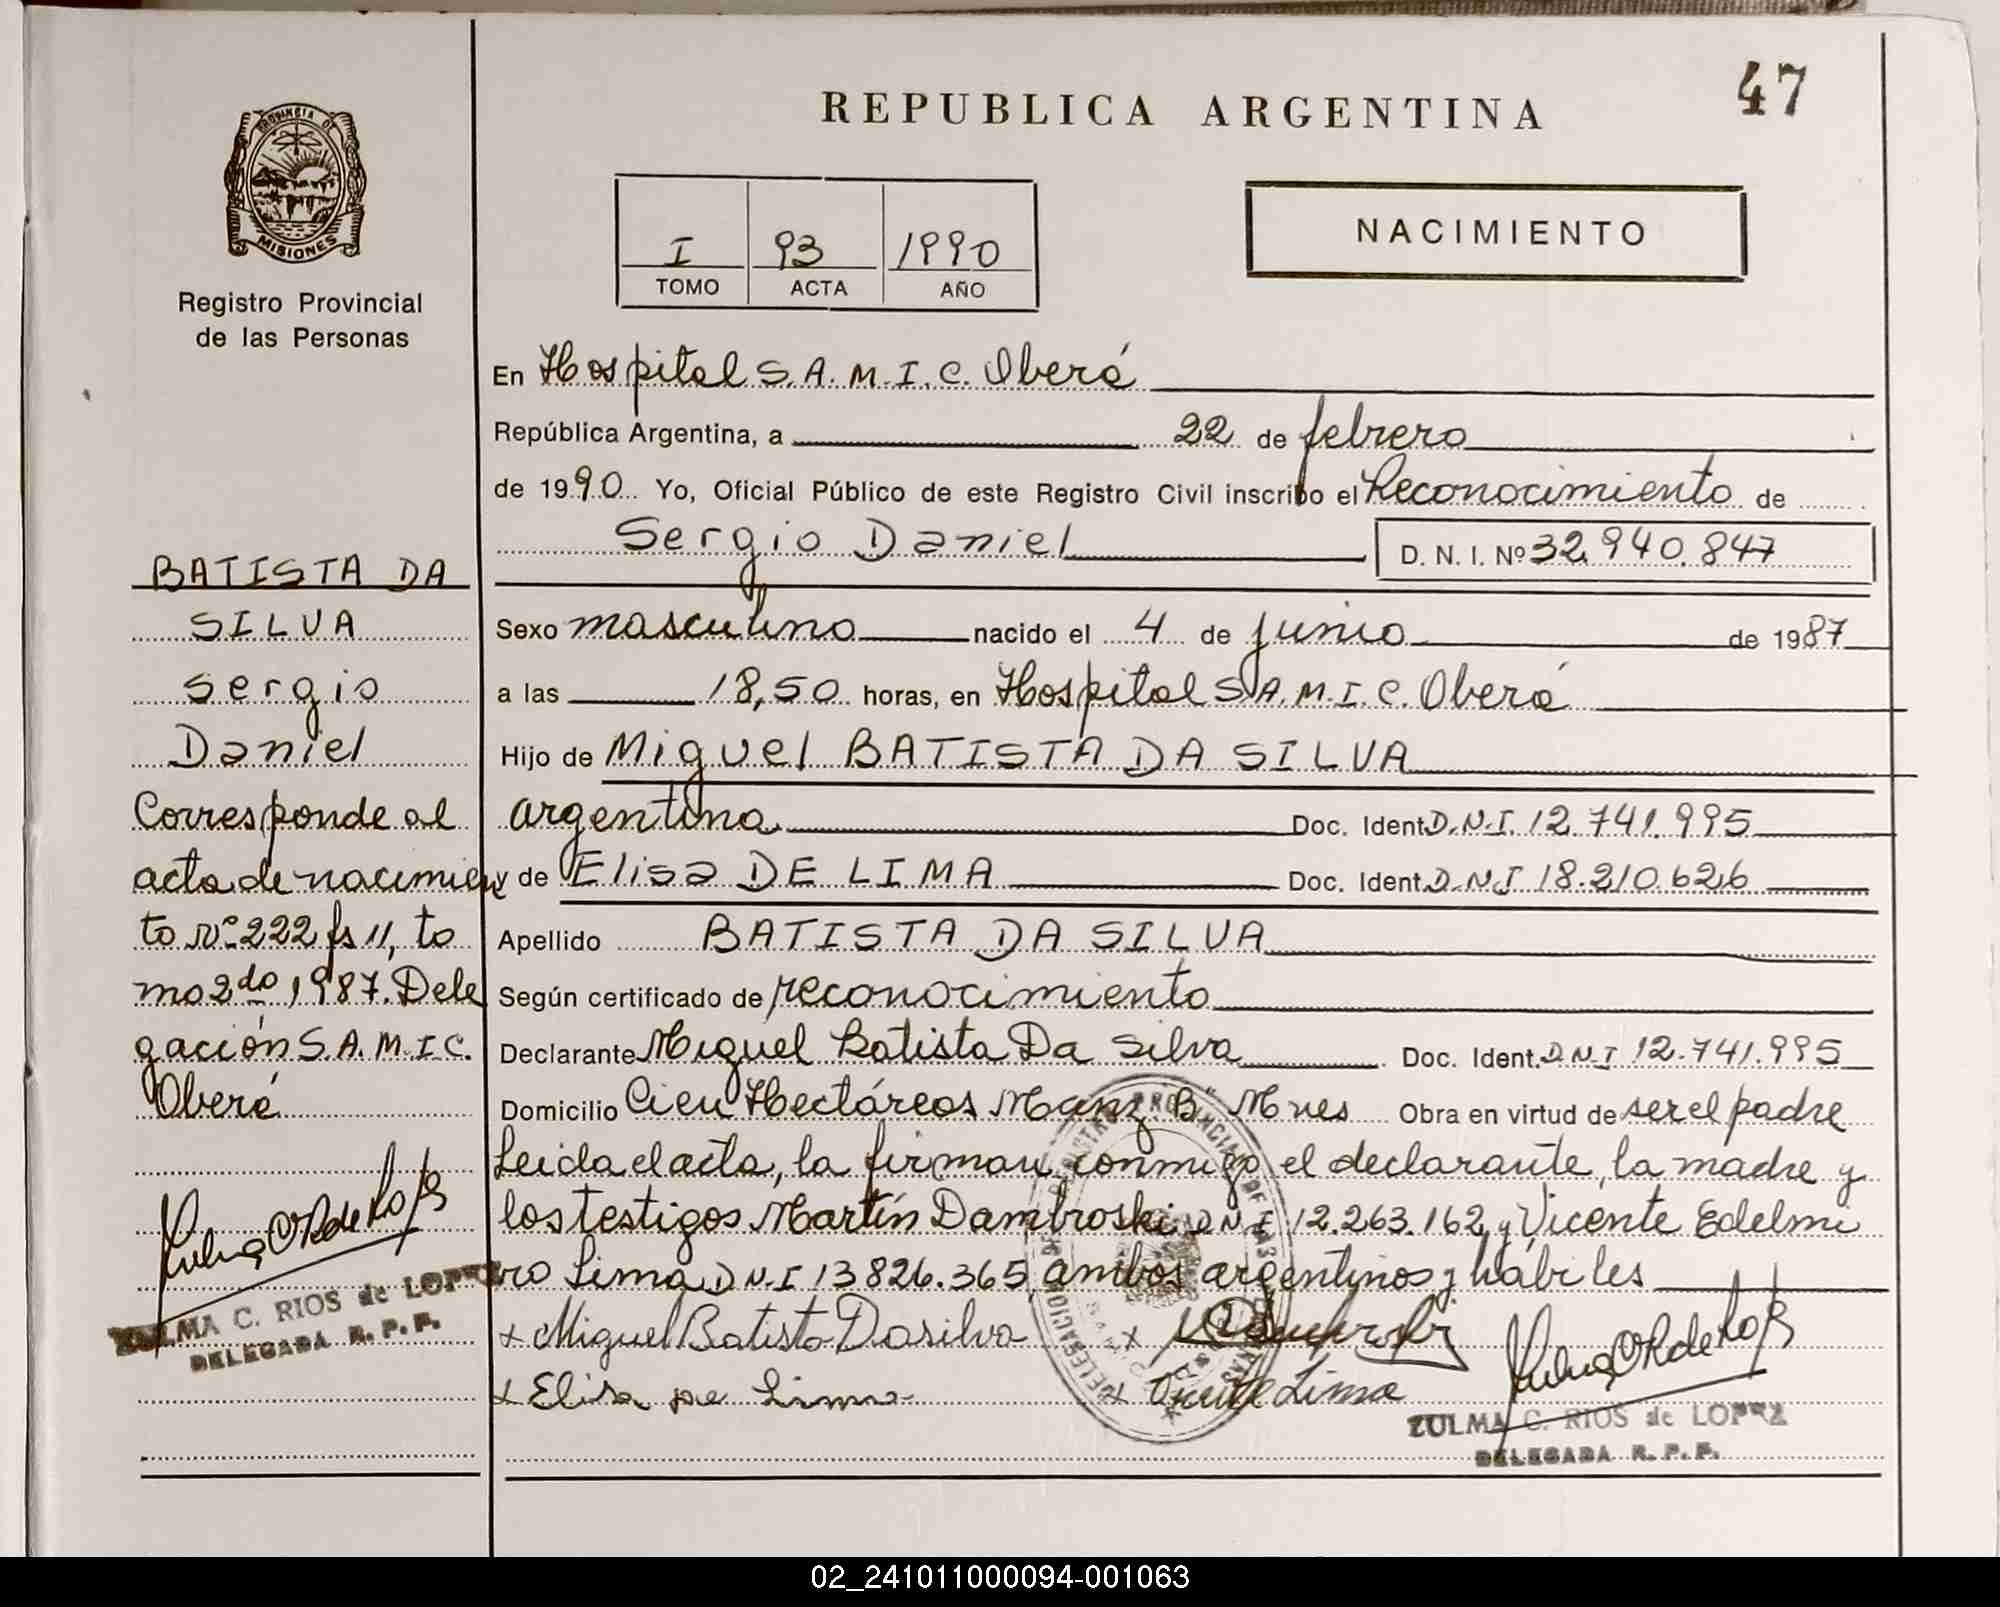 47
REPUBLICA ARGENTINA
PROVINCIA DE
MISIONES
Registro Provincial
de las Personas
I 93 1990
TOMO ACTA AÑO
NACIMIENTO
En Hospital S.A.M.I.C. Oberá
República Argentina, a 22 de febrero
de 1990 Yo, Oficial Público de este Registro Civil inscribo el Reconocimiento de
Sergio Daniel
D. N. I. Nº 32.940.847
Sexo masculino nacido el 4 de junio de 1987
a las 18,50 horas, en Hospital S.A.M.I.C. Oberá
Hijo de Miguel BATISTA DA SILVA
argentina Doc. Ident. D.N.I. 12.741.995
y de Elisa DE LIMA Doc. Ident. D.N.I 18.210.626
Apellido BATISTA DA SILVA
Según certificado de reconocimiento
Declarante Miguel Batista Da Silva Doc. Ident. D.N.I 12.741.995
Domicilio Cien Hectáreas Manz. "B" Mnes Obra en virtud de ser el padre
Leida el acta, la firman conmigo el declarante, la madre y
los testigos Martín Dambroski D.N.I 12.263.162 y Vicente Edelmi
ro Lima D.N.I 13826.365 ambos argentinos y hábiles
x Miguel Batista Dasilva x
x Elisa de Lima x Vicente Lima
ZULMA C. RIOS de LOPEZ
DELEGADA R. P. P.
BATISTA DA
SILVA
Sergio
Daniel
Corresponde al
acta de nacimien
to nº 222 fs 11, to
mo 2do, 1987. Dele
gación S.A.M.I.C.
Oberá
ZULMA C. RIOS de LOPEZ
DELEGADA R. P. P.
02_241011000094-001063